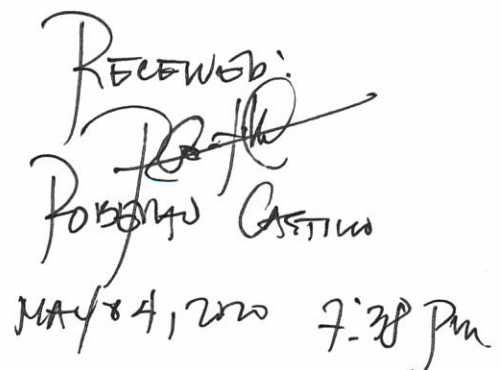 RECEIVED:
ROBERTO CASTILLO
MAY 04, 2020 7:38 PM